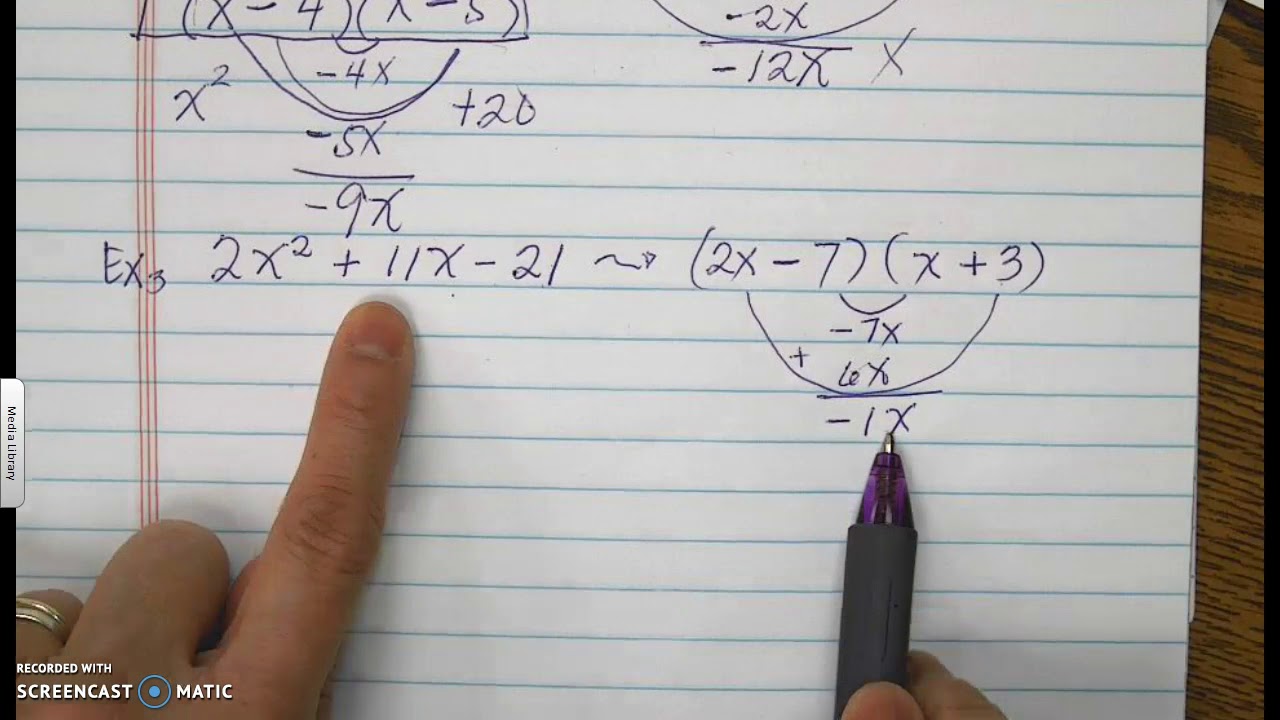 (x - 4)(x - 5)
-4x
x² +20
-5x
-9x
-2x
-12x X
Ex3 2x² + 11x - 21 ⤳ (2x - 7)(x + 3)
-7x
+ 6x
-1x
Media Library
RECORDED WITH
SCREENCAST MATIC